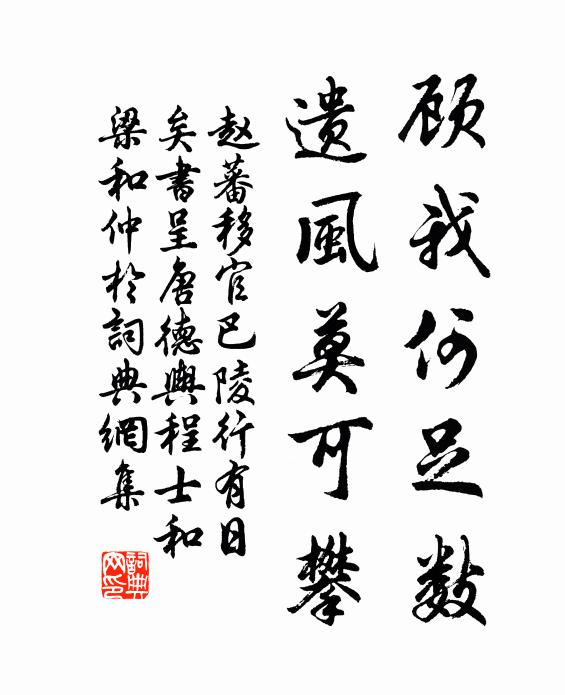 顾我何足数
遗風莫可攀
赵蕃移官巴陵行有日
矣書呈唐德輿程士和
梁和仲於詞典網集
詞典網印